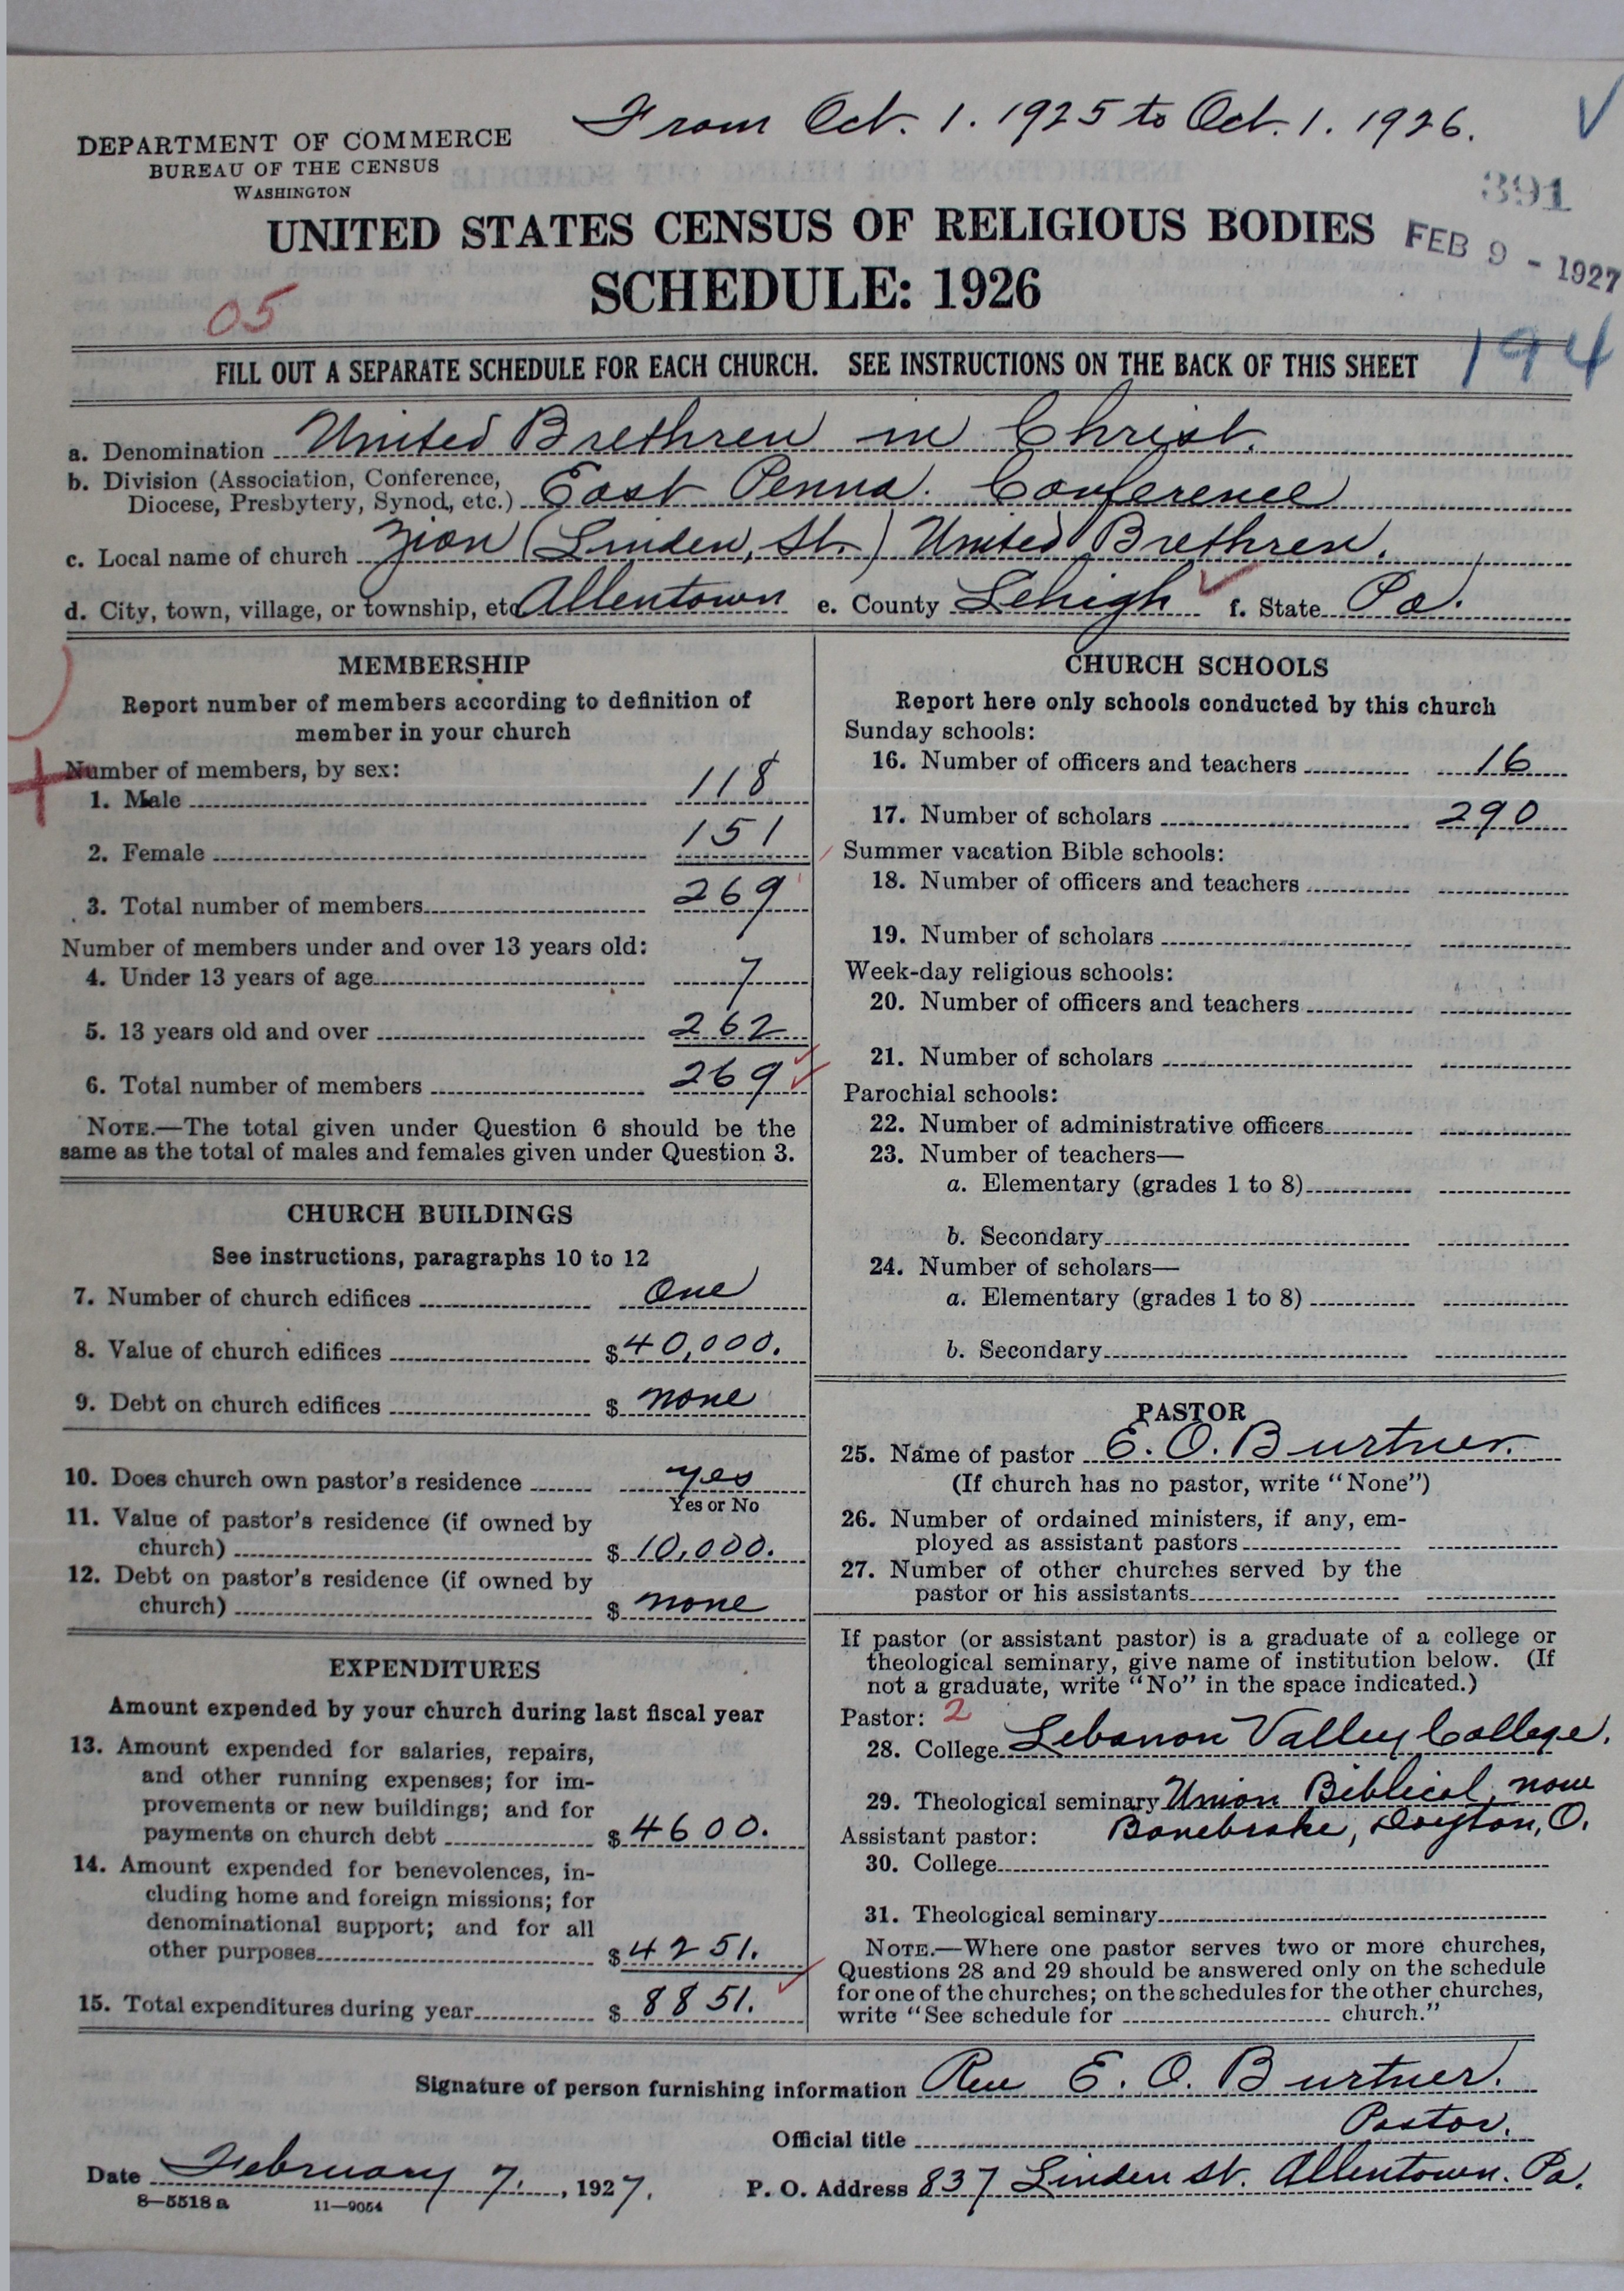 From Oct. 1. 1925 to Oct. 1. 1926.
DEPARTMENT OF COMMERCE
BUREAU OF THE CENSUS
WASHINGTON
391
UNITED STATES CENSUS OF RELIGIOUS BODIES
FEB 9 - 1927
SCHEDULE: 1926
05
FILL OUT A SEPARATE SCHEDULE FOR EACH CHURCH. SEE INSTRUCTIONS ON THE BACK OF THIS SHEET
194
a. Denomination United Brethren in Christ.
b. Division (Association, Conference,
Diocese, Presbytery, Synod, etc.) East Penna. Conference
c. Local name of church Zion (Linden, St.) United Brethren.
d. City, town, village, or township, etc. Allentown e. County Lehigh f. State Pa.
MEMBERSHIP
Report number of members according to definition of
member in your church
Number of members, by sex:
1. Male 118
2. Female 151
3. Total number of members 269
Number of members under and over 13 years old:
4. Under 13 years of age 7
5. 13 years old and over 262
6. Total number of members 269
NOTE.—The total given under Question 6 should be the
same as the total of males and females given under Question 3.
CHURCH BUILDINGS
See instructions, paragraphs 10 to 12
7. Number of church edifices One
8. Value of church edifices $ 40,000.
9. Debt on church edifices $ none
10. Does church own pastor's residence yes
Yes or No
11. Value of pastor's residence (if owned by
church) $ 10,000.
12. Debt on pastor's residence (if owned by
church) $ none
EXPENDITURES
Amount expended by your church during last fiscal year
13. Amount expended for salaries, repairs,
and other running expenses; for im-
provements or new buildings; and for
payments on church debt $ 4600.
14. Amount expended for benevolences, in-
cluding home and foreign missions; for
denominational support; and for all
other purposes $ 4251.
15. Total expenditures during year $ 8851.
CHURCH SCHOOLS
Report here only schools conducted by this church
Sunday schools:
16. Number of officers and teachers 16
17. Number of scholars 290
Summer vacation Bible schools:
18. Number of officers and teachers
19. Number of scholars
Week-day religious schools:
20. Number of officers and teachers
21. Number of scholars
Parochial schools:
22. Number of administrative officers
23. Number of teachers—
a. Elementary (grades 1 to 8)
b. Secondary
24. Number of scholars—
a. Elementary (grades 1 to 8)
b. Secondary
PASTOR
25. Name of pastor E. O. Burtner.
(If church has no pastor, write "None")
26. Number of ordained ministers, if any, em-
ployed as assistant pastors
27. Number of other churches served by the
pastor or his assistants
If pastor (or assistant pastor) is a graduate of a college or
theological seminary, give name of institution below. (If
not a graduate, write "No" in the space indicated.)
Pastor: 2
28. College Lebanon Valley College.
29. Theological seminary Union Biblical, now
Assistant pastor: Bonebrake, Dayton, O.
30. College
31. Theological seminary
NOTE.—Where one pastor serves two or more churches,
Questions 28 and 29 should be answered only on the schedule
for one of the churches; on the schedules for the other churches,
write "See schedule for church."
Signature of person furnishing information Rev E. O. Burtner.
Official title Pastor.
Date February 7, 1927.
P. O. Address 837 Linden St. Allentown. Pa.
8—5518 a 11—9054